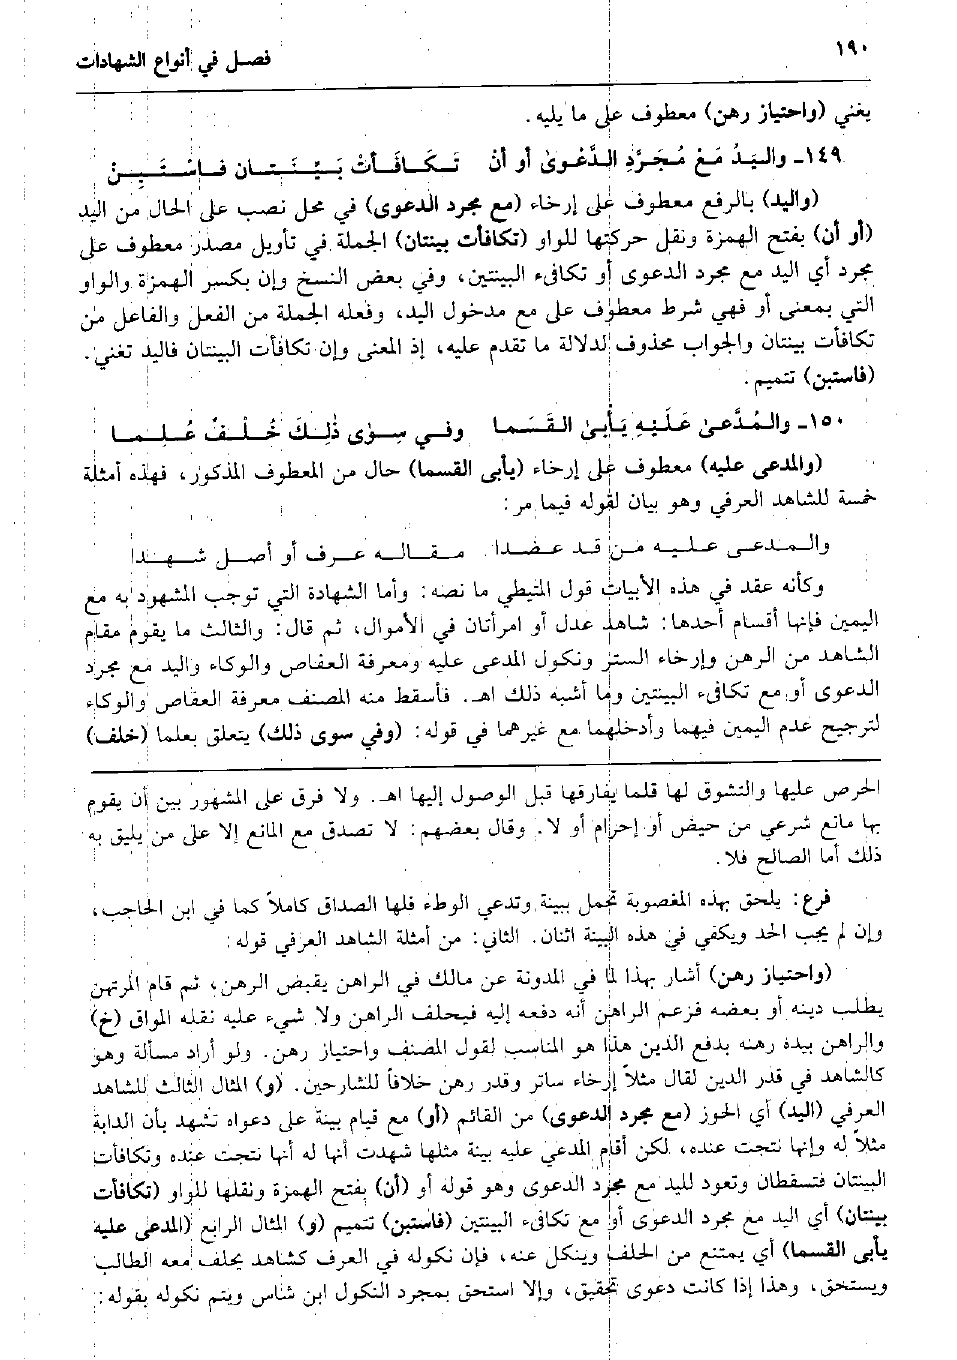 ١٩٠
فصل في أنواع الشهادات
يغني (واحتياز رهن) معطوف على ما يليه.
١٤٩ـ واليَدُ مَعْ مُجَرَّدِ الدَّعْوىٰ أو أن تَكَافَأَتْ بَيِّنَتَانِ فَاسْتَبِنْ
(واليد) بالرفع معطوف على إرخاء (مع مجرد الدعوى) في محل نصب على الحال من اليد
(أو أن) بفتح الهمزة ونقل حركتها للواو (تكافأت بينتان) الجملة في تأويل مصدر معطوف على
مجرد أي اليد مع مجرد الدعوى أو تكافىء البينتين، وفي بعض النسخ وإن بكسر الهمزة والواو
التي بمعنى أو فهي شرط معطوف على مع مدخول اليد، وفعله الجملة من الفعل والفاعل من
تكافأت بينتان والجواب محذوف لدلالة ما تقدم عليه، إذ المعنى وإن تكافأت البينتان فاليد تغني.
(فاستبن) تتميم.
١٥٠ـ والمُدَّعىٰ عَلَيهِ يَأبىٰ القَسَما وفي سِوٰى ذٰلِكَ خُلْفٌ عُلِما
(والمدعى عليه) معطوف على إرخاء (يأبى القسما) حال من المعطوف المذكور، فهذه أمثلة
خمسة للشاهد العرفي وهو بيان لقوله فيما مر:
والمدعى عليه من قد عضدا مقاله عرف أو أصل شهدا
وكأنه عقد في هذه الأبيات قول المتيطي ما نصه: وأما الشهادة التي توجب المشهود به مع
اليمين فإنها أقسام أحدها: شاهد عدل أو امرأتان في الأموال، ثم قال: والثالث ما يقوم مقام
الشاهد من الرهن وإرخاء الستر ونكول المدعى عليه ومعرفة العفاص والوكاء واليد مع مجرد
الدعوى أو مع تكافىء البينتين وما أشبه ذلك اهـ. فأسقط منه المصنف معرفة العفاص والوكاء
لترجيح عدم اليمين فيهما وأدخلهما مع غيرهما في قوله: (وفي سوى ذلك) يتعلق بعلما (خلف)
الحرص عليها والتشوق لها قلما يفارقها قبل الوصول إليها اهـ. ولا فرق على المشهور بين أن يقوم
بها مانع شرعي من حيض أو إحرام أو لا. وقال بعضهم: لا تصدق مع المانع إلا على من يليق به
ذلك أما الصالح فلا.
فرع: يلحق بهذه المغصوبة تحمل ببينة وتدعي الوطء فلها الصداق كاملاً كما في ابن الحاجب،
وإن لم يجب الحد ويكفي في هذه البينة اثنان. الثاني: من أمثلة الشاهد العرفي قوله:
(واحتياز رهن) أشار بهذا لما في المدونة عن مالك في الراهن يقبض الرهن، ثم قام المرتهن
يطلب دينه أو بعضه فزعم الراهن أنه دفعه إليه فيحلف الراهن ولا شيء عليه نقله المواق (خ)
والراهن بيده رهنه بدفع الدين هذا هو المناسب لقول المصنف واحتياز رهن. ولو أراد مسألة وهو
كالشاهد في قدر الدين لقال مثلاً إرخاء ساتر وقدر رهن خلافاً للشارحين. (و) المثال الثالث للشاهد
العرفي (اليد) أي الحوز (مع مجرد الدعوى) من القائم (أو) مع قيام بينة على دعواه تشهد بأن الدابة
مثلاً له وإنها نتجت عنده، لكن أقام المدعي عليه بينة مثلها شهدت أنها له أنها نتجت عنده وتكافأت
البينتان فتسقطان وتعود لليد مع مجرد الدعوى وهو قوله أو (أن) بفتح الهمزة ونقلها للواو (تكافأت
بينتان) أي اليد مع مجرد الدعوى أو مع تكافىء البينتين (فاستبن) تتميم (و) المثال الرابع (المدعى عليه
يأبى القسما) أي يمتنع من الحلف وينكل عنه، فإن نكوله في العرف كشاهد يحلف معه الطالب
ويستحق، وهذا إذا كانت دعوى تحقيق، وإلا استحق بمجرد النكول ابن شاس ويتم نكوله بقوله: